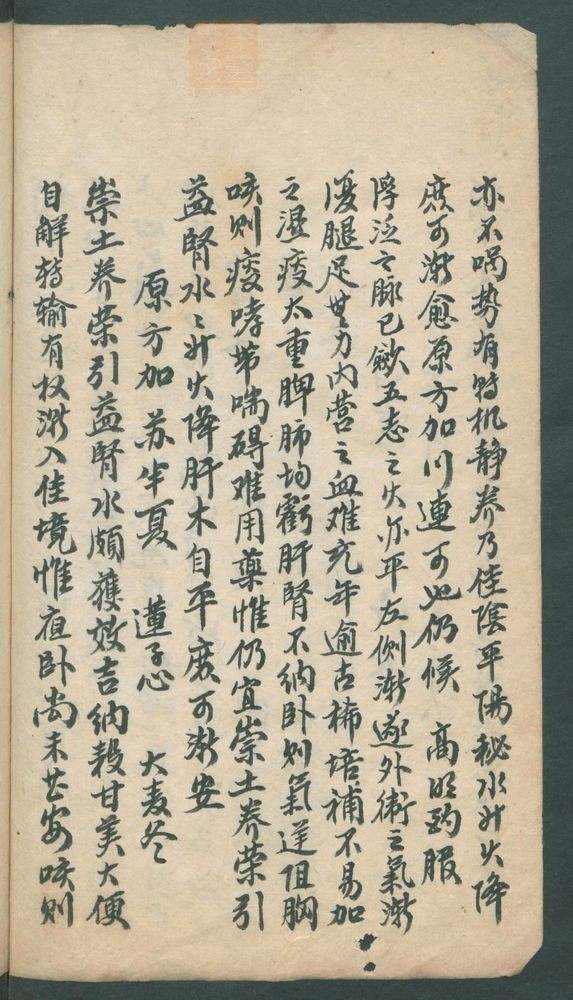 亦不喘势有转机静养乃佳陰平陽秘水升火降
庶可渐愈原方加川連可也仍候 高明酌服
浮泛之脉已歛五志之火亦平左侧渐遂外衛之氣渐
復腿足無力内营之血难充年逾古稀培補不易加
之濕痰太重脾肺均虧肝腎不納卧则氣逆阻胸
咳则痰哮带喘碍难用藥惟仍宜崇土养荣引
益腎水水升火降肝木自平庶可渐安
原方加 苏半夏 蓮子心 大麦冬
崇土养荣引益腎水頗獲效吉納穀甘美大便
自解转输有权渐入佳境惟夜卧尚未甚安咳则